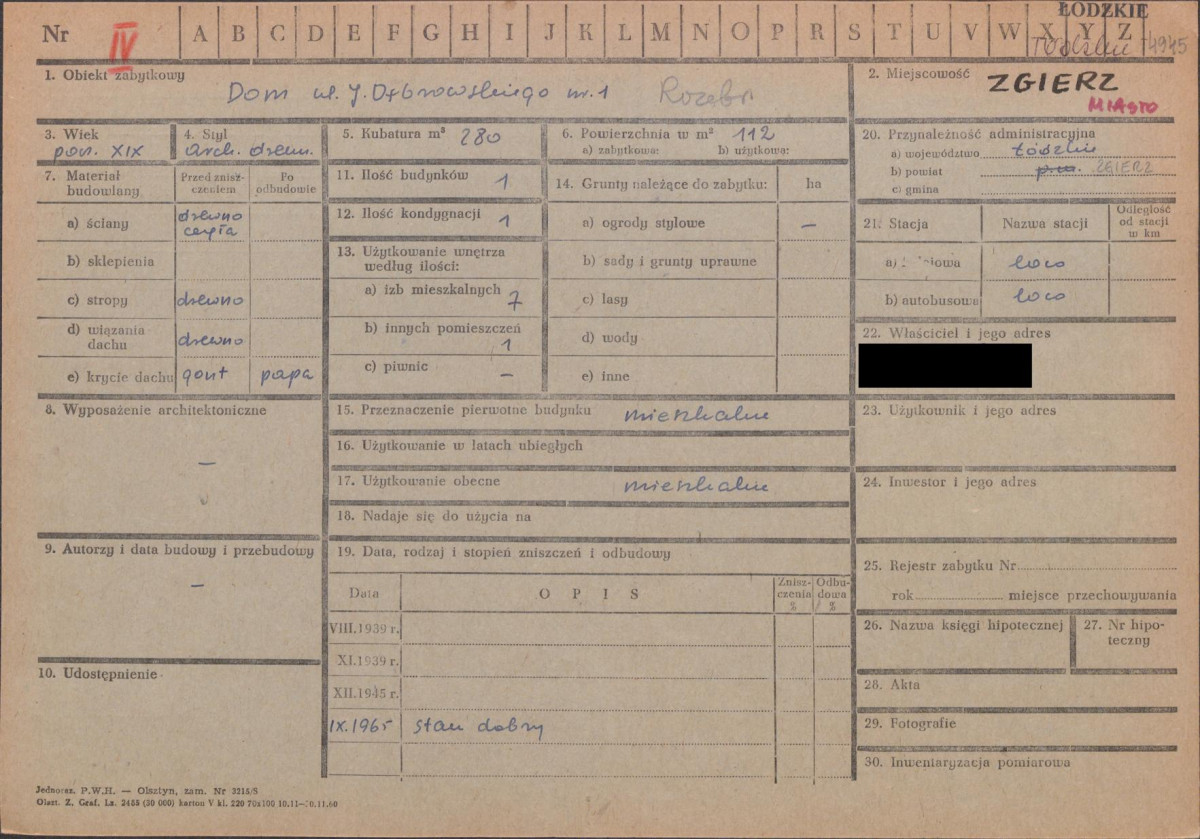 ŁÓDZKIE
Nr IV A B C D E F G H I J K L M N O P R S T U V W X Y Z
1. Obiekt zabytkowy
Dom ul. J. Dąbrowskiego nr. 1
2. Miejscowość ZGIERZ
MIASTO
3. Wiek
poп. XIX
4. Styl
arch. drewn.
5. Kubatura m³ 280
6. Powierzchnia w m² 112
a) zabytkowa: b) użytkowa:
7. Materiał budowlany
Przed znisz-
czeniem
Po
odbudowie
a) ściany
drewno
cegła
b) sklepienia
c) stropy drewno
d) wiązania
dachu drewno
e) krycie dachu gont papa
8. Wyposażenie architektoniczne
—
9. Autorzy i data budowy i przebudowy
—
10. Udostępnienie
11. Ilość budynków 1
12. Ilość kondygnacji 1
13. Użytkowanie wnętrza
według ilości:
a) izb mieszkalnych 7
b) innych pomieszczeń
1
c) piwnic —
14. Grunty należące do zabytku: ha
a) ogrody stylowe —
b) sady i grunty uprawne
c) lasy
d) wody
e) inne
15. Przeznaczenie pierwotne budynku mieszkalne
16. Użytkowanie w latach ubiegłych
17. Użytkowanie obecne mieszkalne
18. Nadaje się do użycia na
19. Data, rodzaj i stopień zniszczeń i odbudowy
Data OPIS
Znisz-
czenia
%
Odbu-
dowa
%
VIII.1939 r.
XI.1939 r.
XII.1945 r.
IX.1965 stan dobry
20. Przynależność administracyjna
a) województwo Łódzkie
b) powiat ZGIERZ
c) gmina
21. Stacja Nazwa stacji
Odległość
od stacji
w km
a) loco
b) autobusowa loco
22. Właściciel i jego adres
23. Użytkownik i jego adres
24. Inwestor i jego adres
25. Rejestr zabytku Nr
rok miejsce przechowywania
26. Nazwa księgi hipotecznej
27. Nr hipo-
teczny
28. Akta
29. Fotografie
30. Inwentaryzacja pomiarowa
Jednoraz. P.W.H. — Olsztyn, zam. Nr 3215/S